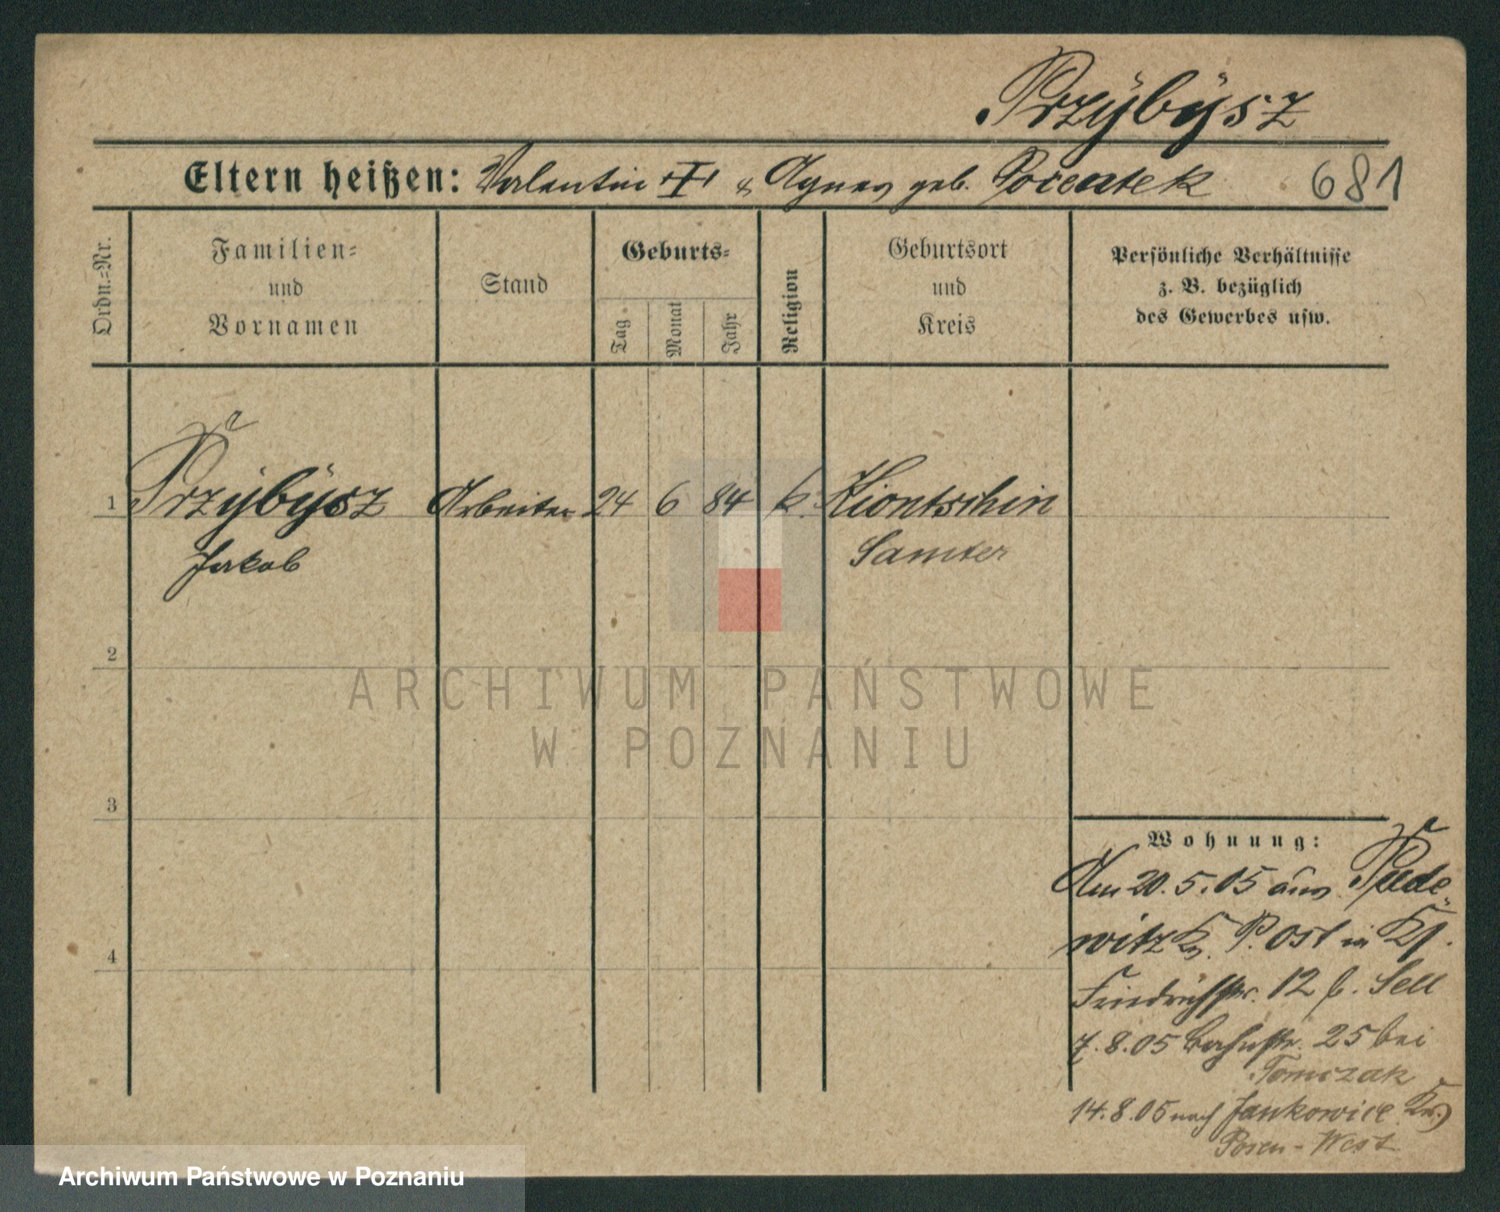 Przÿbÿsz
Eltern heißen: Valentin & Agnes geb. 681
Ordn.=Nr.
Familien=
und
Vornamen
Stand
Geburts=
Tag
Monat
Jahr
Religion
Geburtsort
und
Kreis
Persönliche Verhältnisse
z. B. bezüglich
des Gewerbes usw.
1 Przÿbÿsz Arbeiter 24 6 84 k. Kiontschin
Jakob Samter
2
ARCHIWUM PAŃSTWOWE
W POZNANIU
3
Wohnung:
Am 20.5.05 aus Pude-
witz Kr. P. Ost in
Friedrichstr. 12 b. Sell
7.8.05 Bahnstr. 25 bei
Tomczak
14.8.05 nach Jankowice Kr.
Posen-West
4
Archiwum Państwowe w Poznaniu